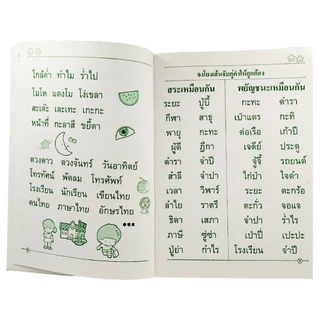 ใกล้ค่ำ ทำไม ร่ำไป
โมโห แตงโม โง่เขลา
สะเต๊ะ เละเทะ เกะกะ
หน้าที่ กะลาสี ขยี้ตา
ดวงดาว ดวงจันทร์ วันอาทิตย์
โทรทัศน์ พัดลม โทรศัพท์
โรงเรียน นักเรียน เขียนไทย
คนไทย ภาษาไทย อักษรไทย
จงโยงเส้นจับคู่คำให้ถูกต้อง
สระเหมือนกัน พยัญชนะเหมือนกัน
ระยะ ปู่นี้ กะทะ ตำรา
กีฬา สาธุ เป่าแตร กะทิ
พายุ กะทะ ต่อเรือ เก้าปี
ผู้ดี ฎีกา เจดีย์ ประตู
ตำรา จำปี จู้จี้ รถยนต์
สำลี จำปา ไก่ป่า ใจดำ
เวลา วิพาร์ ระยะ ตะกร้อ
ลำไย ราตรี ตะกั่ว จอแจ
ธิดา เสภา จำปา ร่ำไร
ภาษี ซู่ซ่า เป่าปี่ เปะปะ
ปู่ย่า กำไร โรงเรียน จำปี